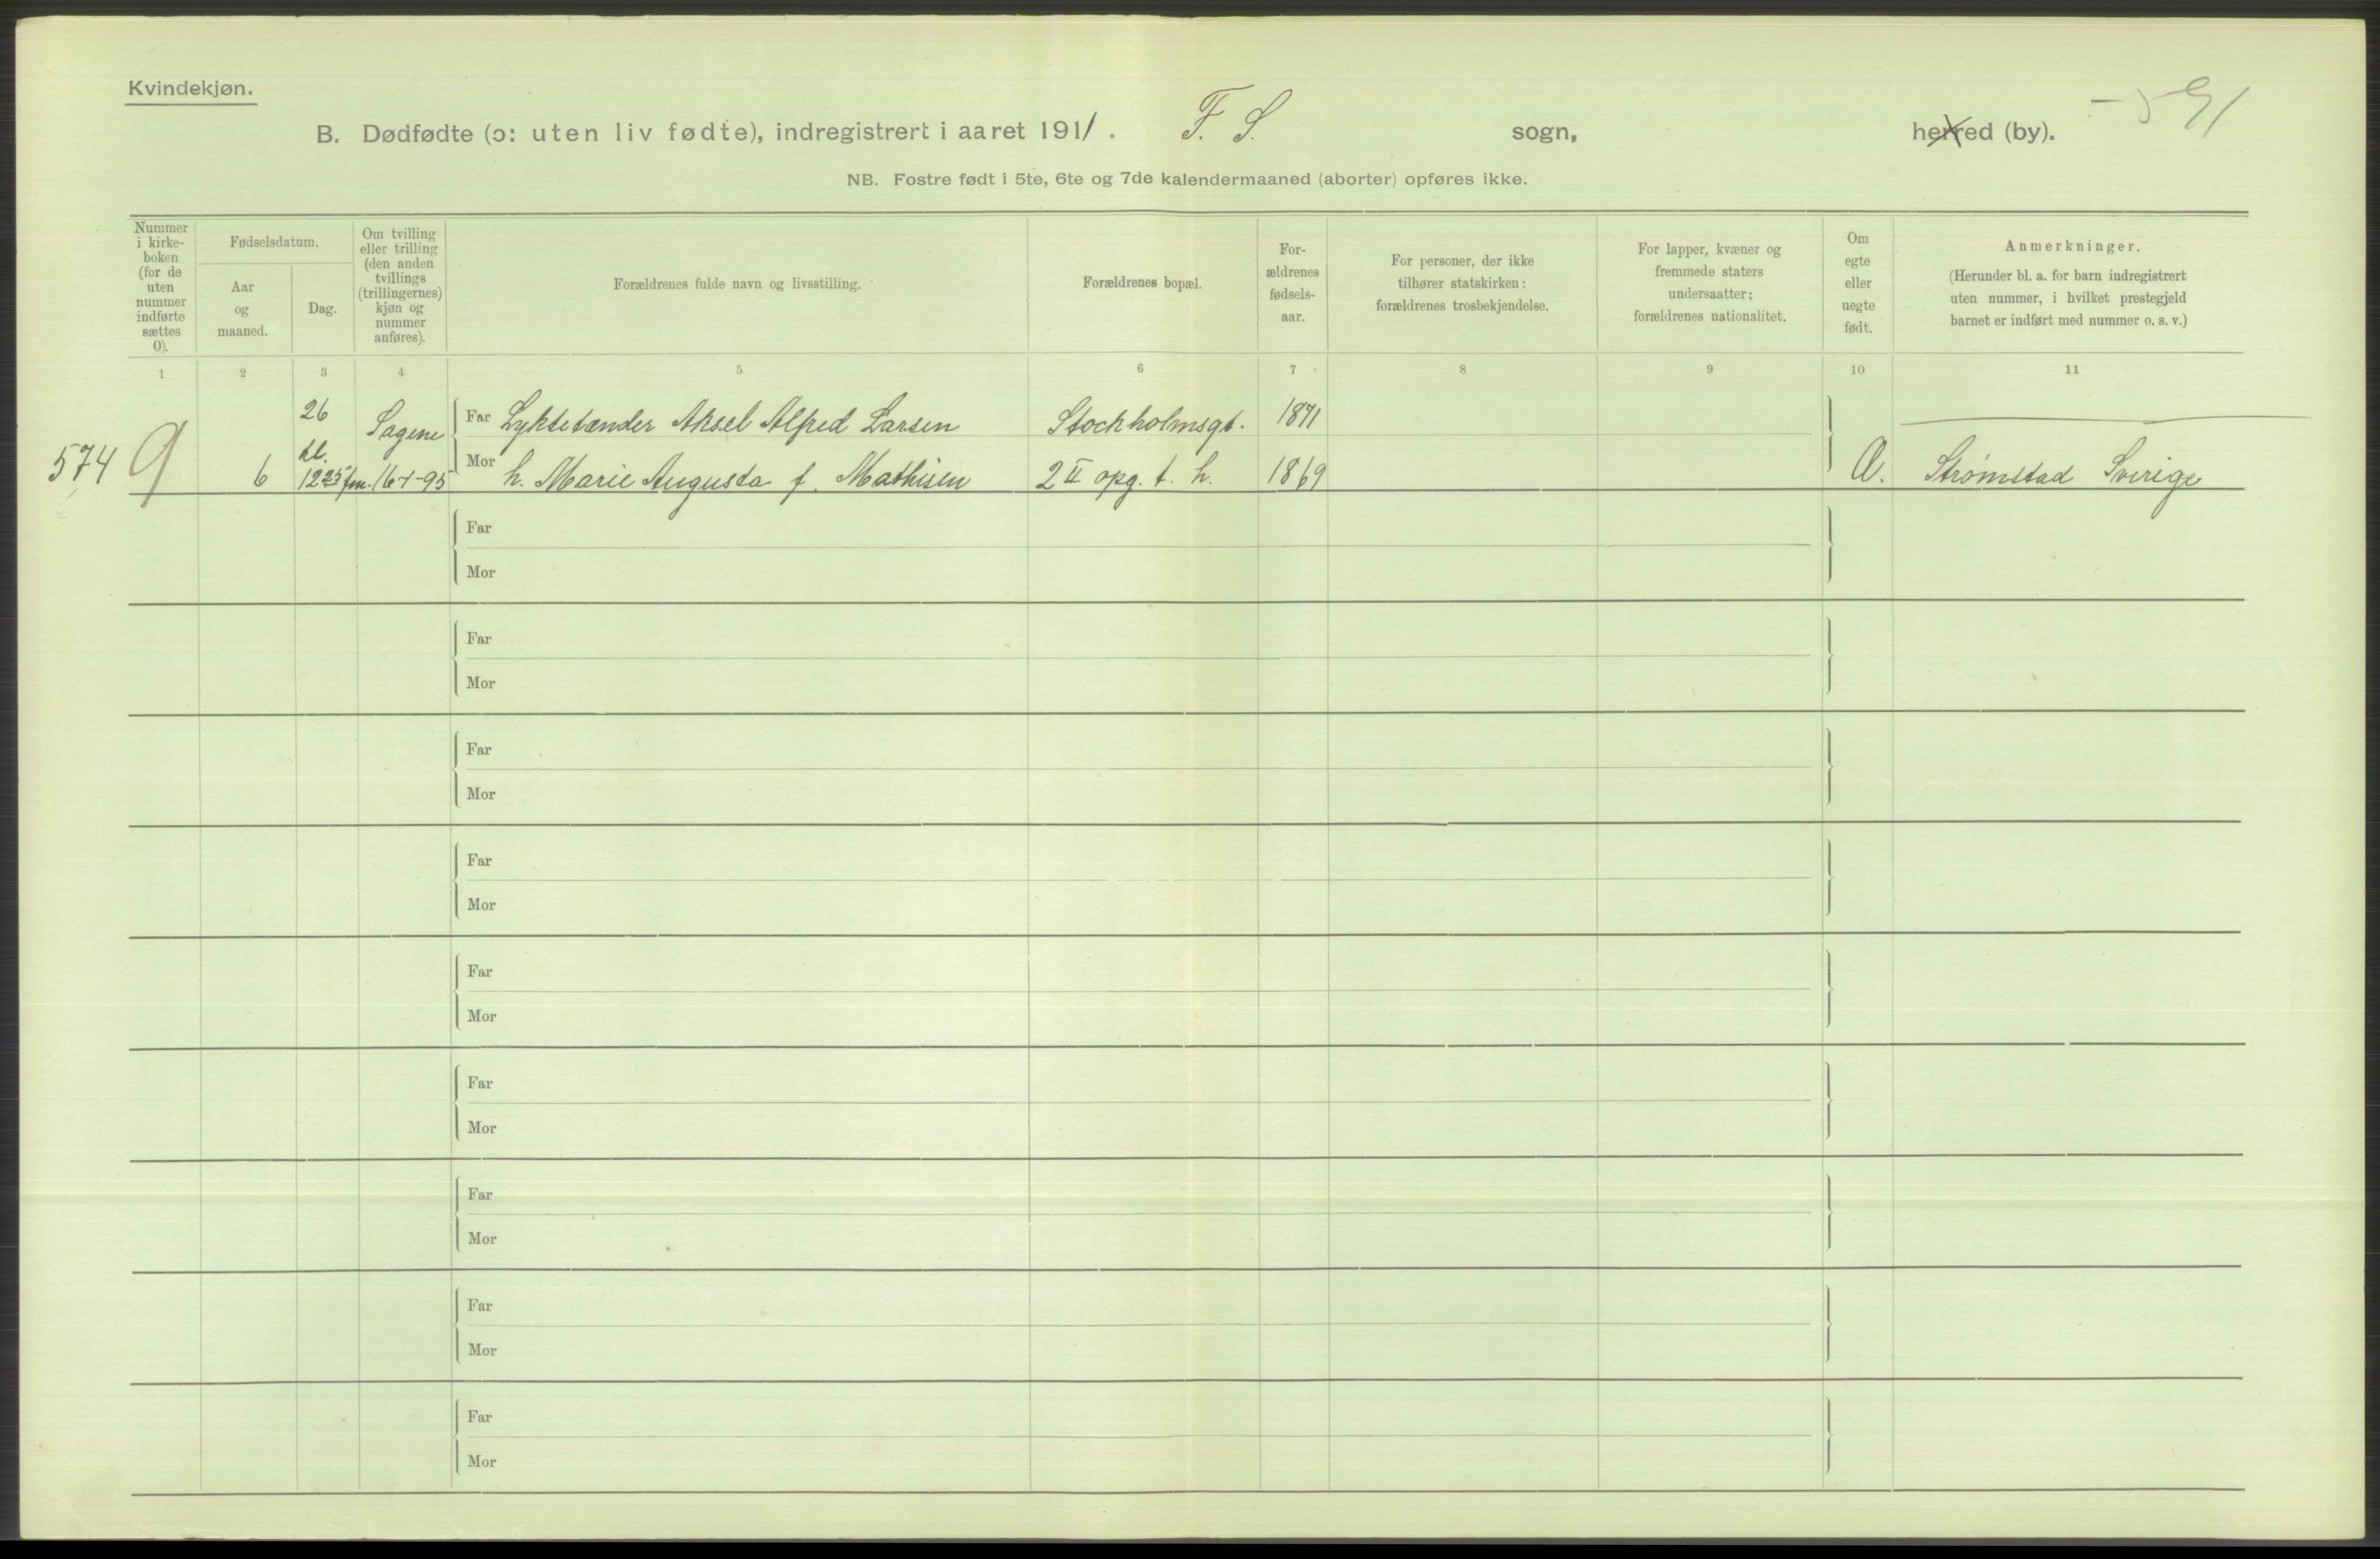 Kvindekjøn.
B. Dødfødte (ɔ: uten liv fødte), indregistrert i aaret 1911. F. S. sogn, herred (by).
NB. Fostre født i 5te, 6te og 7de kalendermaaned (aborter) opføres ikke.
Nummer
i kirke-
boken
(for de
uten
nummer
indførte
sættes
0).
Fødselsdatum.
Aar
og
maaned.
Dag.
Om tvilling
eller trilling
(den anden
tvillings
(trillingernes)
kjøn og
nummer
anføres).
Forældrenes fulde navn og livsstilling.
Forældrenes bopæl.
For-
ældrenes
fødsels-
aar.
For personer, der ikke
tilhører statskirken:
forældrenes trosbekjendelse.
For lapper, kvæner og
fremmede staters
undersaatter:
forældrenes nationalitet.
Om
egte
eller
uegte
født.
Anmerkninger.
(Herunder bl. a. for barn indregistrert
uten nummer, i hvilket prestegjeld
barnet er indført med nummer o. s. v.)
1 2 3 4 5 6 7 8 9 10 11
26 Sagene Far Lyktetænder Aksel Alfred Larsen Stockholmsgt. 1871
kl.
574 9 6 12 25 fm. 16-1-95 Mor h. Marie Augusta f. Mathisen 2 II opg. t. h. 1869 Strømstad Sverige
Far
Mor
Far
Mor
Far
Mor
Far
Mor
Far
Mor
Far
Mor
Far
Mor
Far
Mor
Far
Mor